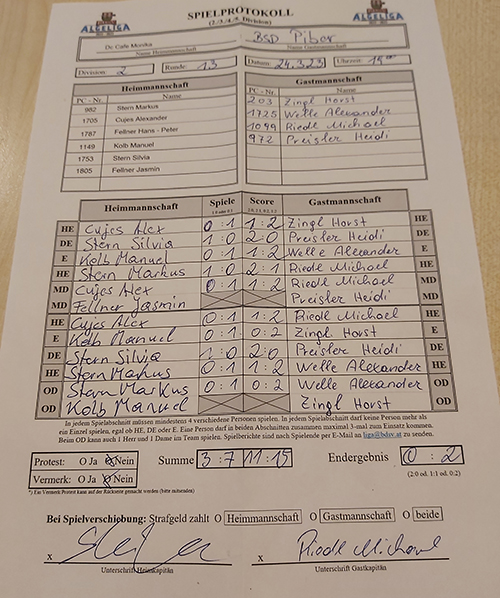 SPIELPROTOKOLL
(2./3./4./5. Division)
ALGELIGA ALGELIGA
Dc Cafe Monika BSD Piber
Name Heimmannschaft Name Gastmannschaft
Division: 2 Runde: 13 Datum: 24.3.23 Uhrzeit: 15 00
Heimmannschaft Gastmannschaft
PC - Nr. Name PC - Nr. Name
982 Stern Markus 203 Zingl Horst
1705 Cujes Alexander 1725 Welle Alexander
1787 Fellner Hans - Peter 1099 Riedl Michael
1149 Kolb Manuel 972 Preisler Heidi
1753 Stern Silvia
1805 Fellner Jasmin
Heimmannschaft Spiele Score Gastmannschaft
HE Cujes Alex 0:1 1:2 Zingl Horst HE
DE Stern Silvia 1:0 2:0 Preisler Heidi DE
E Kolb Manuel 0:1 1:2 Welle Alexander E
HE Stern Markus 1:0 2:1 Riedl Michael HE
MD Cujes Alex 0:1 1:2 Riedl Michael MD
MD Fellner Jasmin Preisler Heidi MD
HE Cujes Alex 0:1 1:2 Riedl Michael HE
E Kolb Manuel 0:1 0:2 Zingl Horst E
DE Stern Silvia 1:0 2:0 Preisler Heidi DE
HE Stern Markus 0:1 1:2 Welle Alexander HE
OD Stern Markus 0:1 0:2 Welle Alexander OD
OD Kolb Manuel Zingl Horst OD
In jedem Spielabschnitt müssen mindestens 4 verschiedene Personen spielen. In jedem Spielabschnitt darf keine Person mehr als
ein Einzel spielen, egal ob HE, DE oder E. Eine Person darf in beiden Abschnitten zusammen maximal 3-mal zum Einsatz kommen.
Beim OD kann auch 1 Herr und 1 Dame im Team spielen. Spielberichte sind nach Spielende per E-Mail an liga@bdsv.at zu senden.
Protest: O Ja O Nein Summe 3:7 11:15 Endergebnis 0:2
Vermerk: O Ja O Nein (2:0 od. 1:1 od. 0:2)
*) Ein Vermerk/Protest kann auf der Rückseite gemacht werden (bitte mitsenden)
Bei Spielverschiebung: Strafgeld zahlt O Heimmannschaft O Gastmannschaft O beide
x x Riedl Michael
Unterschrift Heimkapitän Unterschrift Gastkapitän